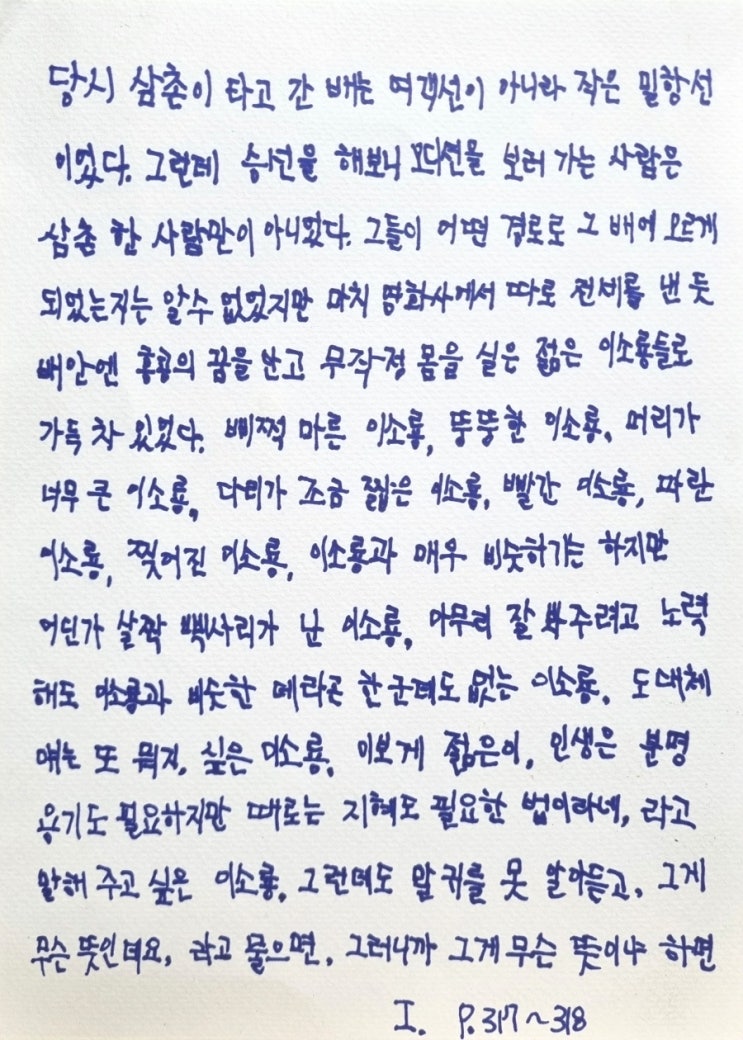 당시 삼촌이 타고 간 배는 여객선이 아니라 작은 밀항선
이었다. 그런데 승선을 해보니 오디션을 보러 가는 사람은
삼촌 한 사람만이 아니었다. 그들이 어떤 경로로 그 배에 오르게
되었는지는 알수 없었지만 마치 영화사에서 따로 전세를 낸 듯
배안엔 홍콩의 꿈을 안고 무작정 몸을 실은 젊은 이소룡들로
가득 차 있었다. 삐쩍 마른 이소룡, 뚱뚱한 이소룡, 머리가
너무 큰 이소룡, 다리가 조금 짧은 이소룡, 빨간 이소룡, 파란
이소룡, 찢어진 이소룡, 이소룡과 매우 비슷하기는 하지만
어딘가 살짝 삑사리가 난 이소룡, 아무리 잘 봐주려고 노력
해도 이소룡과 비슷한 데라곤 한군데도 없는 이소룡, 도대체
얘는 또 뭐지, 싶은 이소룡, 이보게 젊은이, 인생은 분명
용기도 필요하지만 때로는 지혜도 필요한 법이라네, 라고
말해 주고 싶은 이소룡, 그런데도 말귀를 못 알아듣고, 그게
무슨 뜻인데요, 라고 물으면, 그러니까 그게 무슨 뜻이냐 하면
I. P.317~318